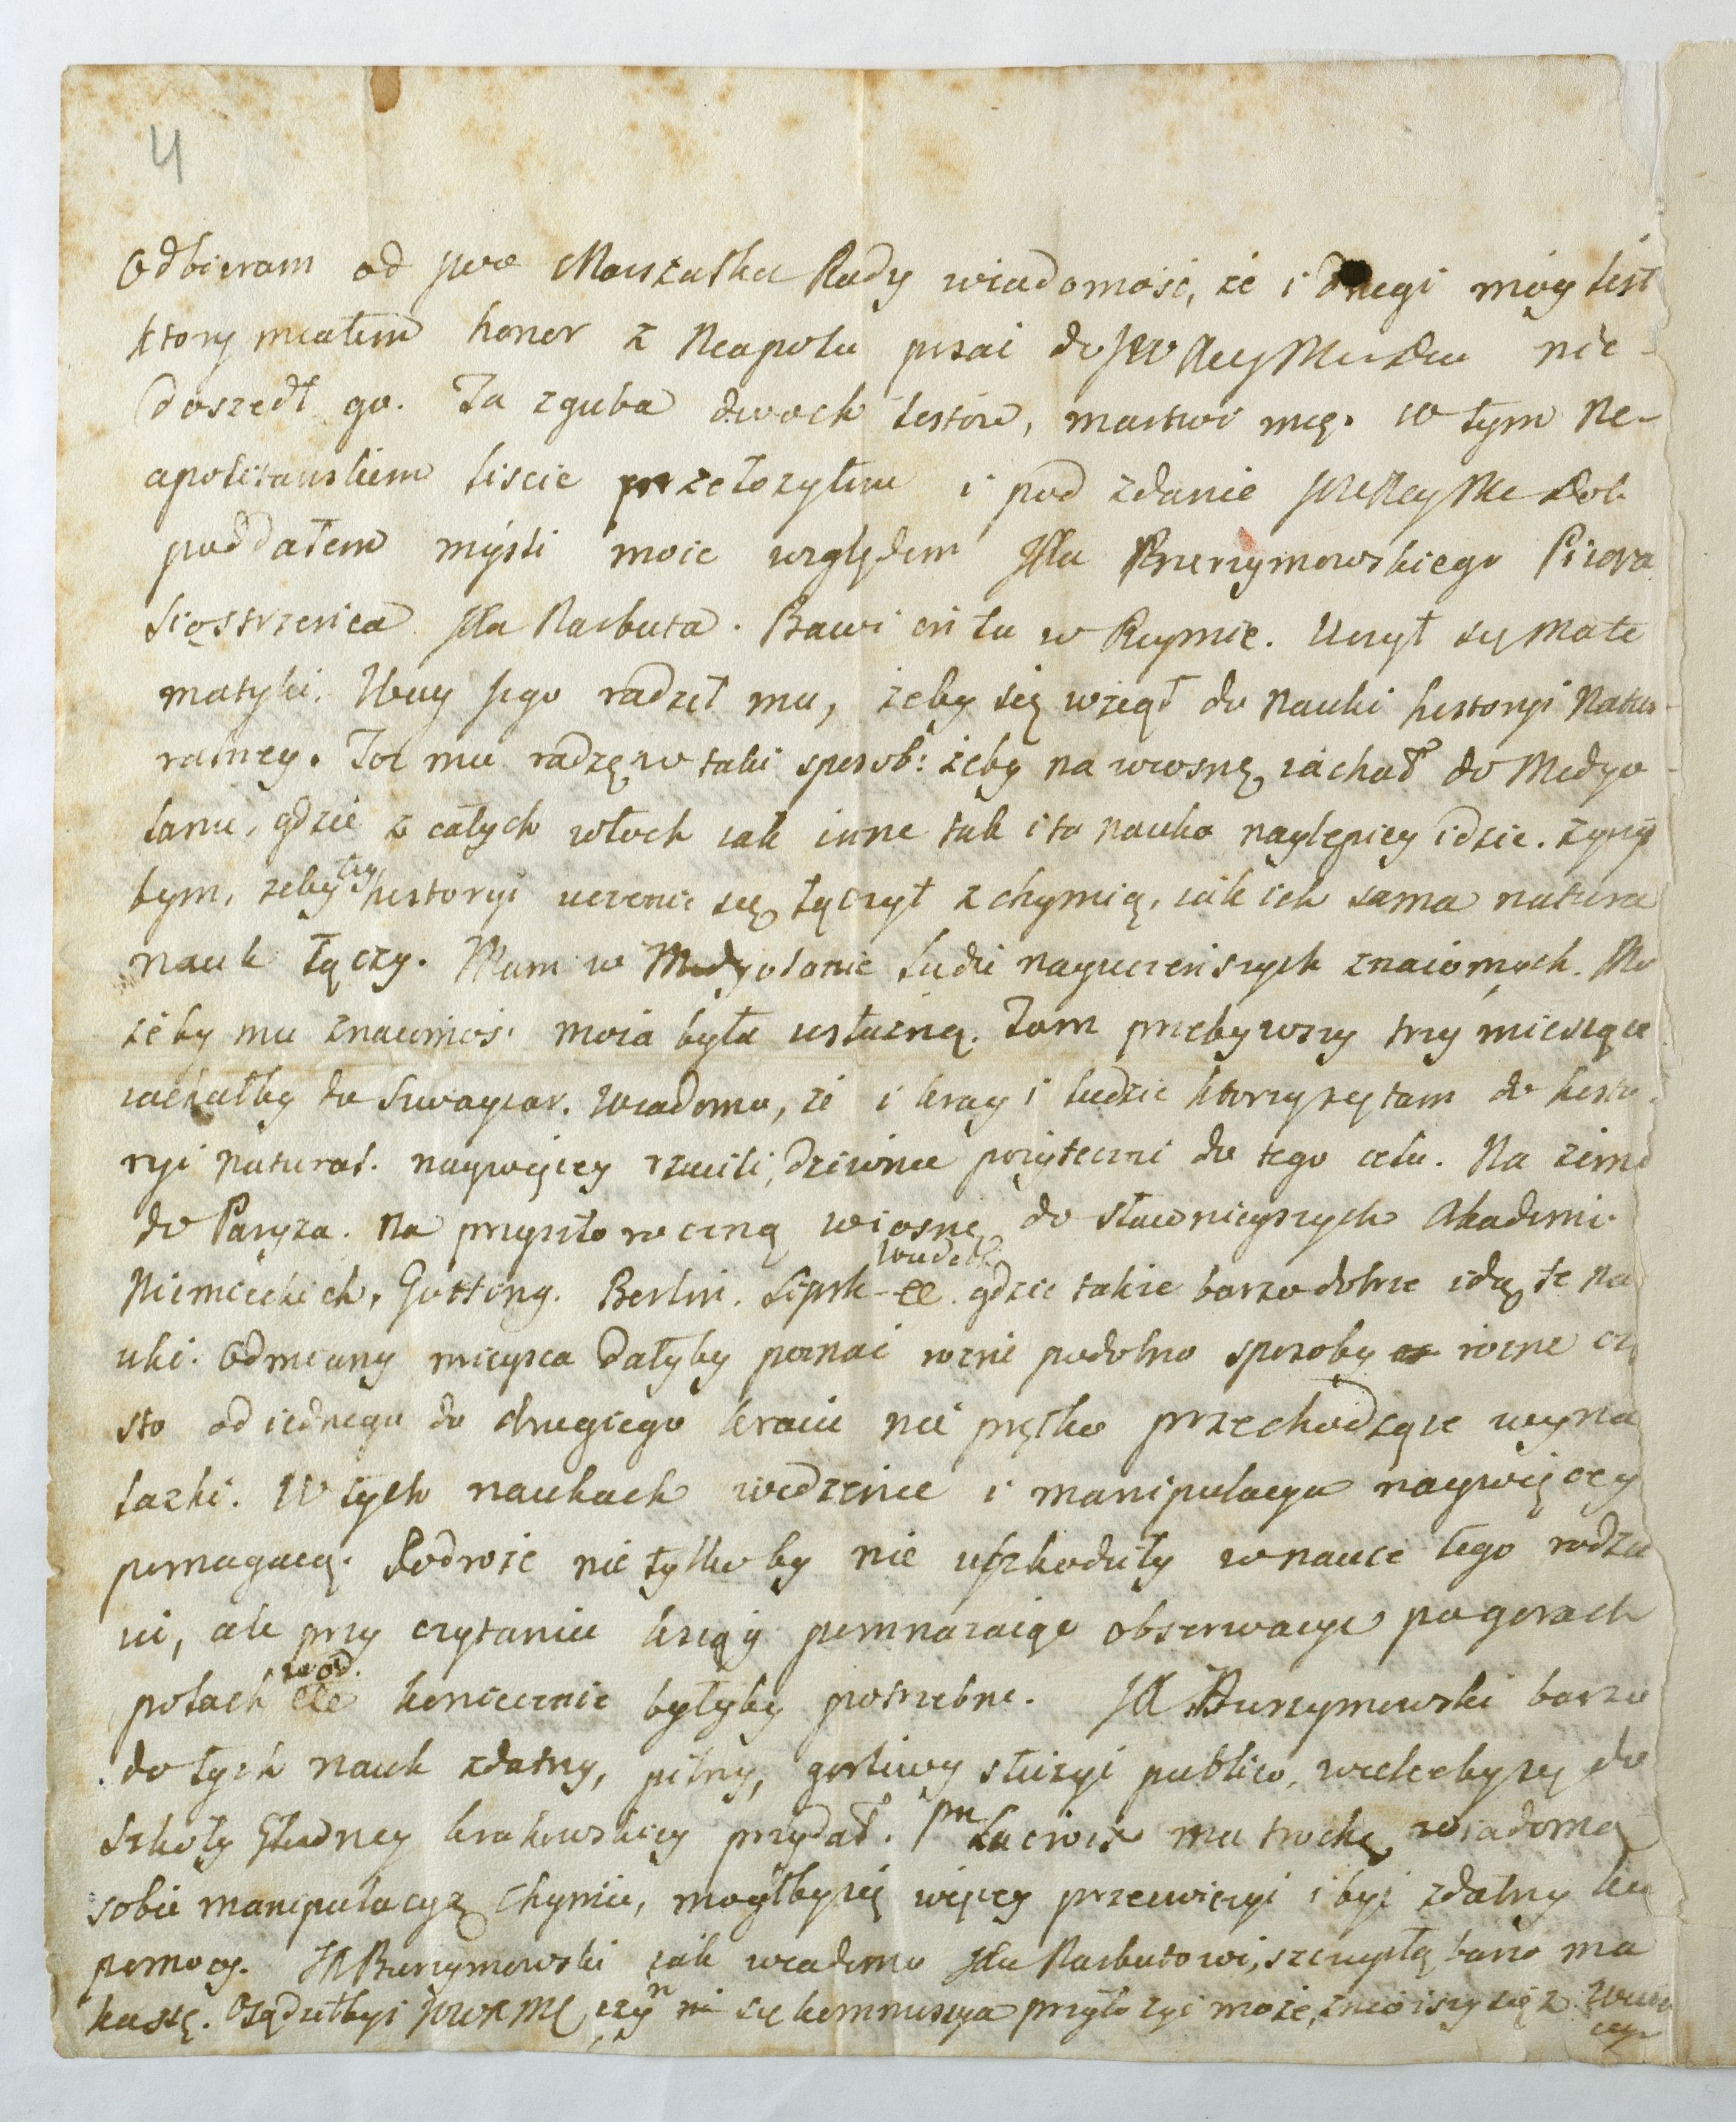 4
Odbieram od JWo Marszałka Rady wiadomość, że i drugi móy list
ktory miałem honor z Neapolu pisać do JW nie-
doszedł go. Ta zguba dwoch listów, martwi mię. w tym Ne-
apolitanskiem liscie przełozyłem i pod zdanie Dob
poddałem mýsli moie względem JKa Burzymowskiego Piiara
Siostrzenca JKa Narbuta. Bawi on tu w Rzymie. Uczył się Mate
matyki. Wuy Jego radził mu, żeby się wziął do nauki historyi Natu-
ralney. Ja mu radzę w taki sposob: żeby na wiosnę iachał do Medyo-
lanu, gdzie z całych włoch iak inne tak i ta nauka naylepiey idzie. zyczył
bym, zeby tey historyi uczenie się łączył z chymią, iak ich sama natura
nauk łączy. Mam w Medyolanie ludzi nayuczeńszych znaiomych. Mo
żeby mu znaiomość moia była usłużną. Tam przebywszy trzy miesiące
iachałby do Swaycar. Wiadomo, że i kray i ludzie ktorzy się tam do histo-
ryi natural. naywięcey rzucili, dziwnie pożyteczni do tego celu. Na zimę
do Paryża. Na przyszłoroczną wiosnę do sławnieyszych Akademi
Niemieckich, Gotting. Berlin. Lipsk gdzie także barzo dobrze idą te na
uki. Odmiany mieysca dałyby poznać rożne podobno sposoby rożne czę
sto od iednego do drugiego kraiu nie prętko przechodzące wyna
lazki. W tych naukach widzenie i manipulacya naywięcey
pomagaią. Podroże nie tylko by nie uszkodziły w nauce tego rodza
iu, ale przy czytaniu ksiąg pomnażaiąc obserwacye po gorach
polach wod. koniecznie byłyby potrzebne. JX Burzymowski barzo
do tych nauk zdatny, pilny, gorliwy służyć publico, wieleby się do
Szkoły Głudney krakowskiey przydał. Pn ma trochę wiadomą
sobie manipulacyą Chymii, mogłby się więcey przećwiczyć i być zdatny ku
pomocy. JX Burzymowski iak wiadomo JKu Narbutowi, szczupłą barzo ma
kassę. Osądziłbyś czy się kommissya przyłożyć może, zniosłszy się z